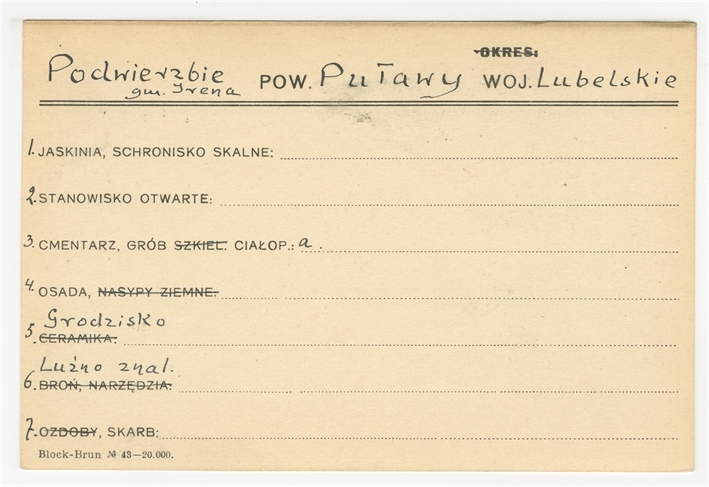 OKRES:
Podwierzbie POW. Puławy WOJ. Lubelskie
gm. Irena
1. JASKINIA, SCHRONISKO SKALNE:
2. STANOWISKO OTWARTE:
3. CMENTARZ, GRÓB SZKIEL. CIAŁOP.: a.
4. OSADA, NASYPY ZIEMNE.
Grodzisko
5. CERAMIKA.
Luźno znal.
6. BROŃ, NARZĘDZIA.
7. OZDOBY, SKARB:
Block-Brun № 43—20.000.